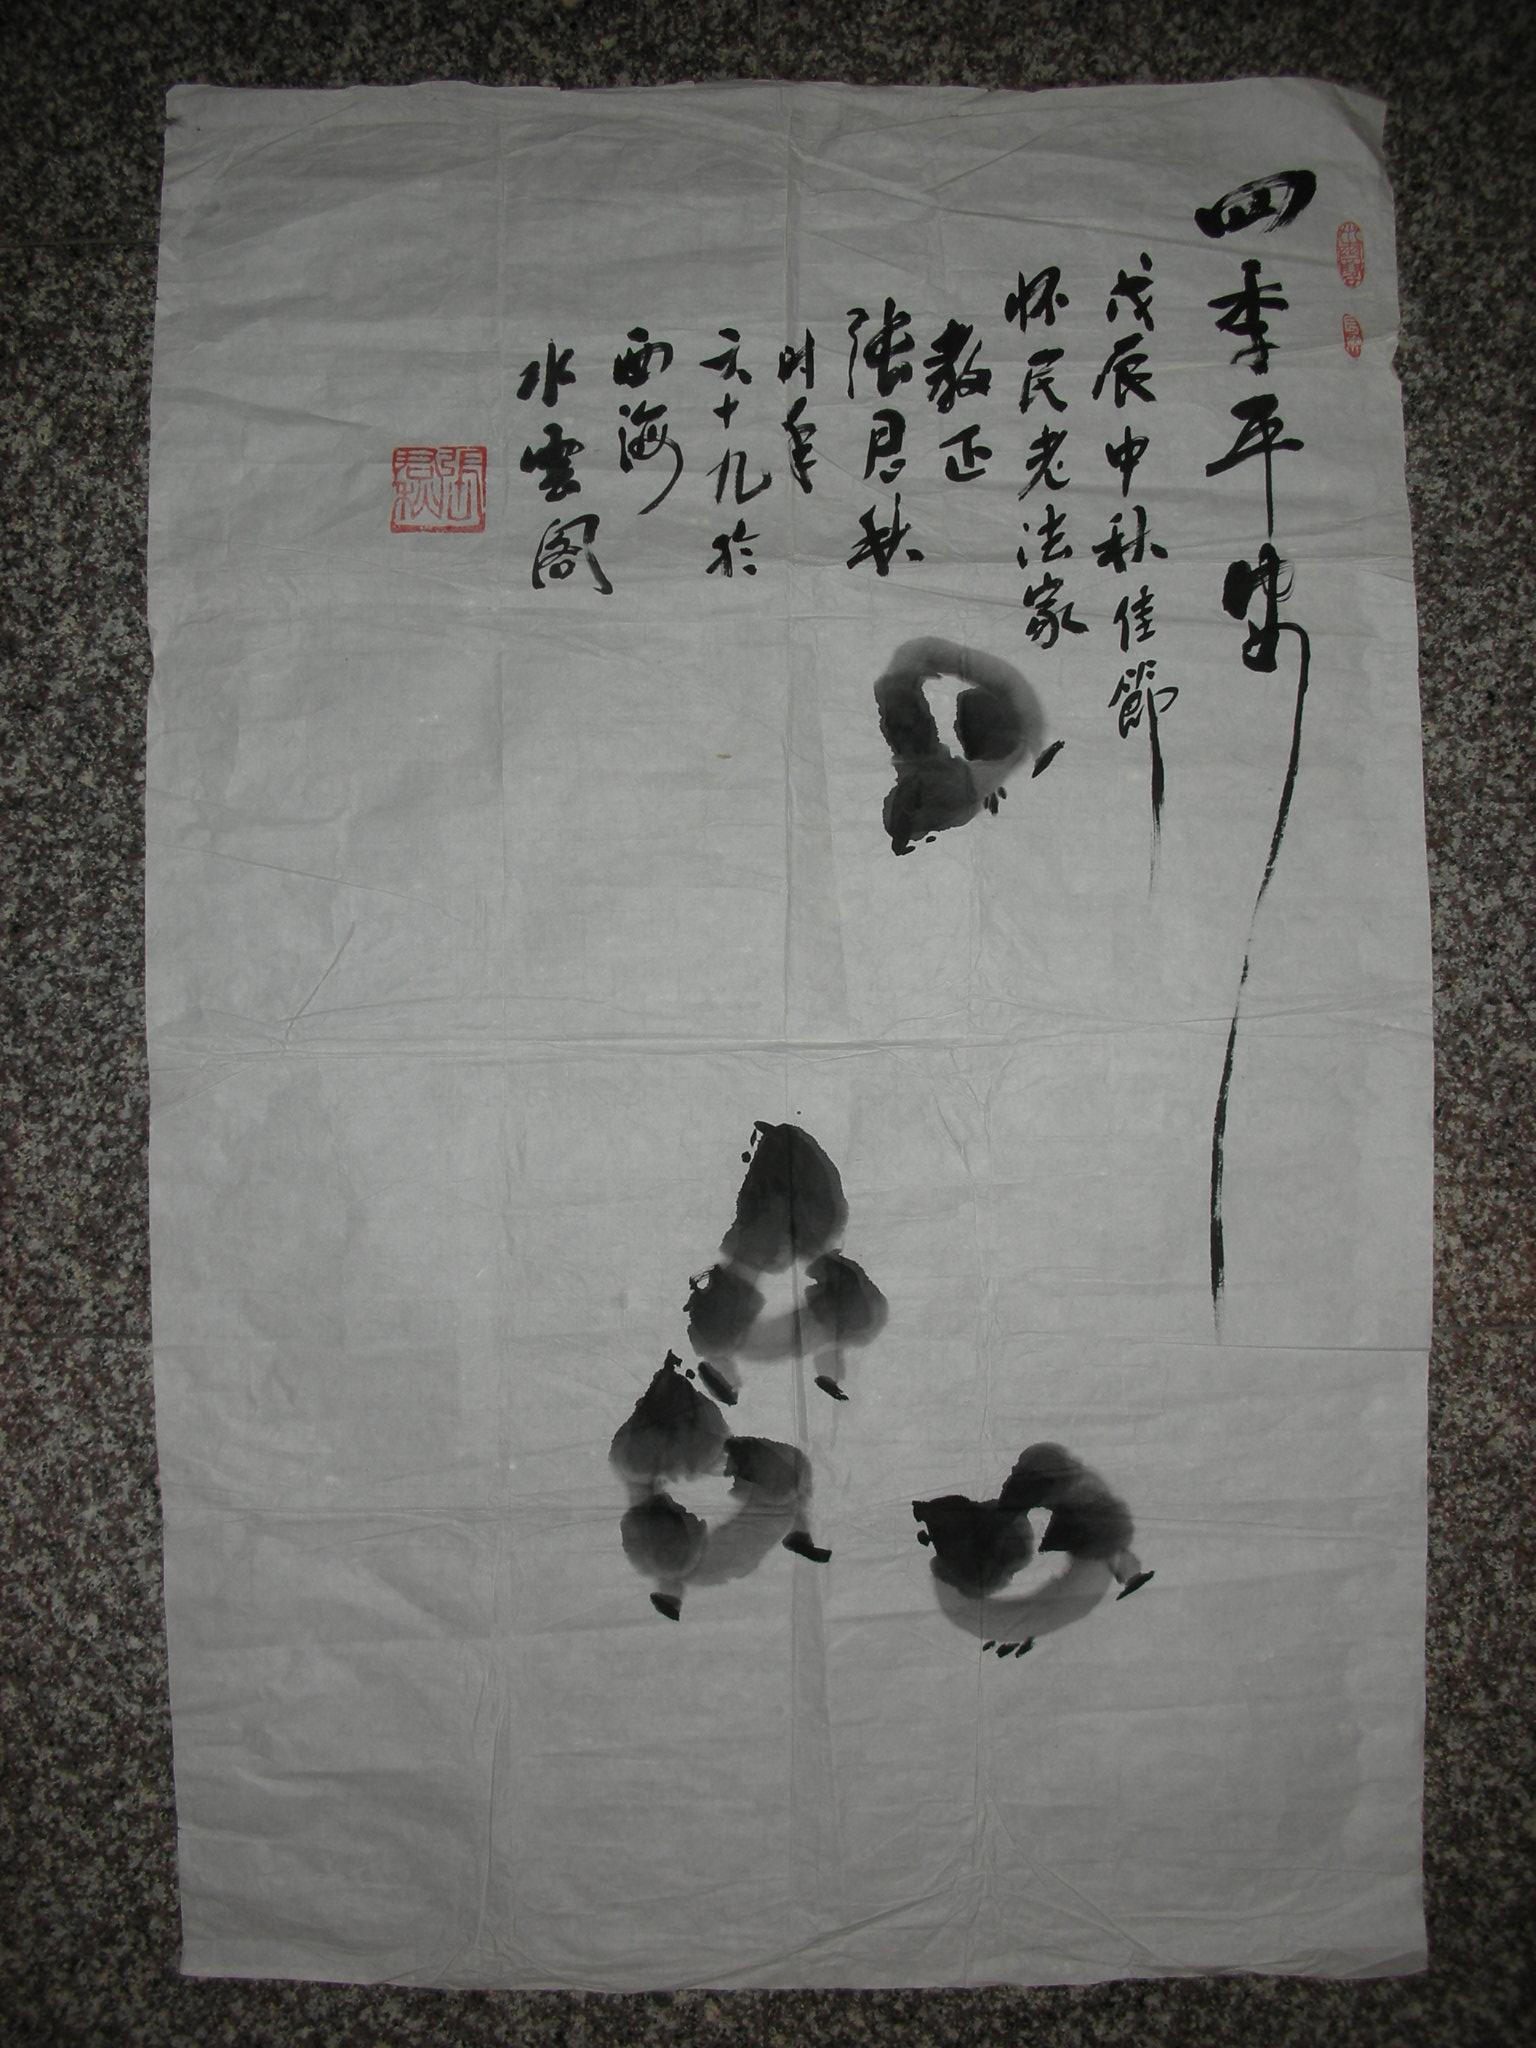 四季平安
戊辰中秋佳節
怀民老法家
教正
张君秋
时年
六十九於
西海
水雲阁
張君秋